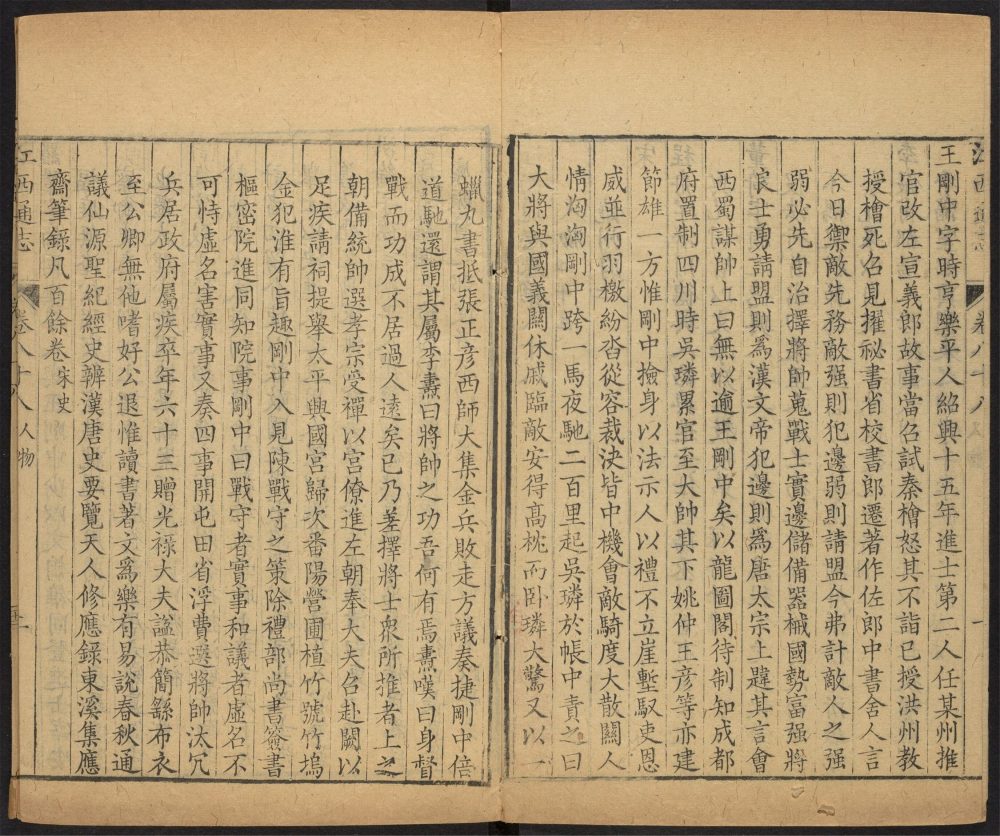 江西通志
卷八十八
王剛中字時亨樂平人紹興十五年進士第二人任某州推
官改左宣義郎故事當召試秦檜怒其不詣已授洪州教
授檜死召見擢祕書省校書郎遷著作佐郎中書舍人言
今日禦敵先務敵强則犯邊弱則請盟今弗計敵人之强
弱必先自治擇將帥蒐戰士實邊儲備器械國勢富强將
良士勇請盟則爲漢文帝犯邊則爲唐太宗上韙其言會
西蜀謀帥上曰無以逾王剛中矣以龍圖閣待制知成都
府置制四川時吳璘累官至大帥其下姚仲王彦等亦建
節雄一方惟剛中撿身以法示人以禮不立崖塹馭吏恩
威並行羽檄紛沓從容裁決皆中機會敵騎度大散關人
情洶洶剛中跨一馬夜馳二百里起吳璘於帳中責之曰
大將與國義關休戚臨敵安得髙枕而卧璘大驚又以
蠟丸書抵張正彦西師大集金兵敗走方議奏捷剛中倍
道馳還謂其屬李燾曰將帥之功吾何有焉燾嘆曰身督
戰而功成不居過人遠矣已乃差擇將士衆所推者上之
朝備統帥選孝宗受禪以宮僚進左朝奉大夫召赴闕以
足疾請祠提舉太平興國宮歸次番陽營圃植竹號竹塢
金犯淮有旨趣剛中入見陳戰守之策除禮部尚書簽書
樞密院進同知院事剛中曰戰守者實事和議者虛名不
可恃虛名害實事又奏四事開屯田省浮費選將帥汰冗
兵居政府屬疾卒年六十三贈光祿大夫諡恭簡繇布衣
至公卿無他嗜好公退惟讀書著文爲樂有易說春秋通
議仙源聖紀經史辨漢唐史要覽天人修應録東溪集應
齋筆録凡百餘卷宋史
江西通志
卷八十八
人物